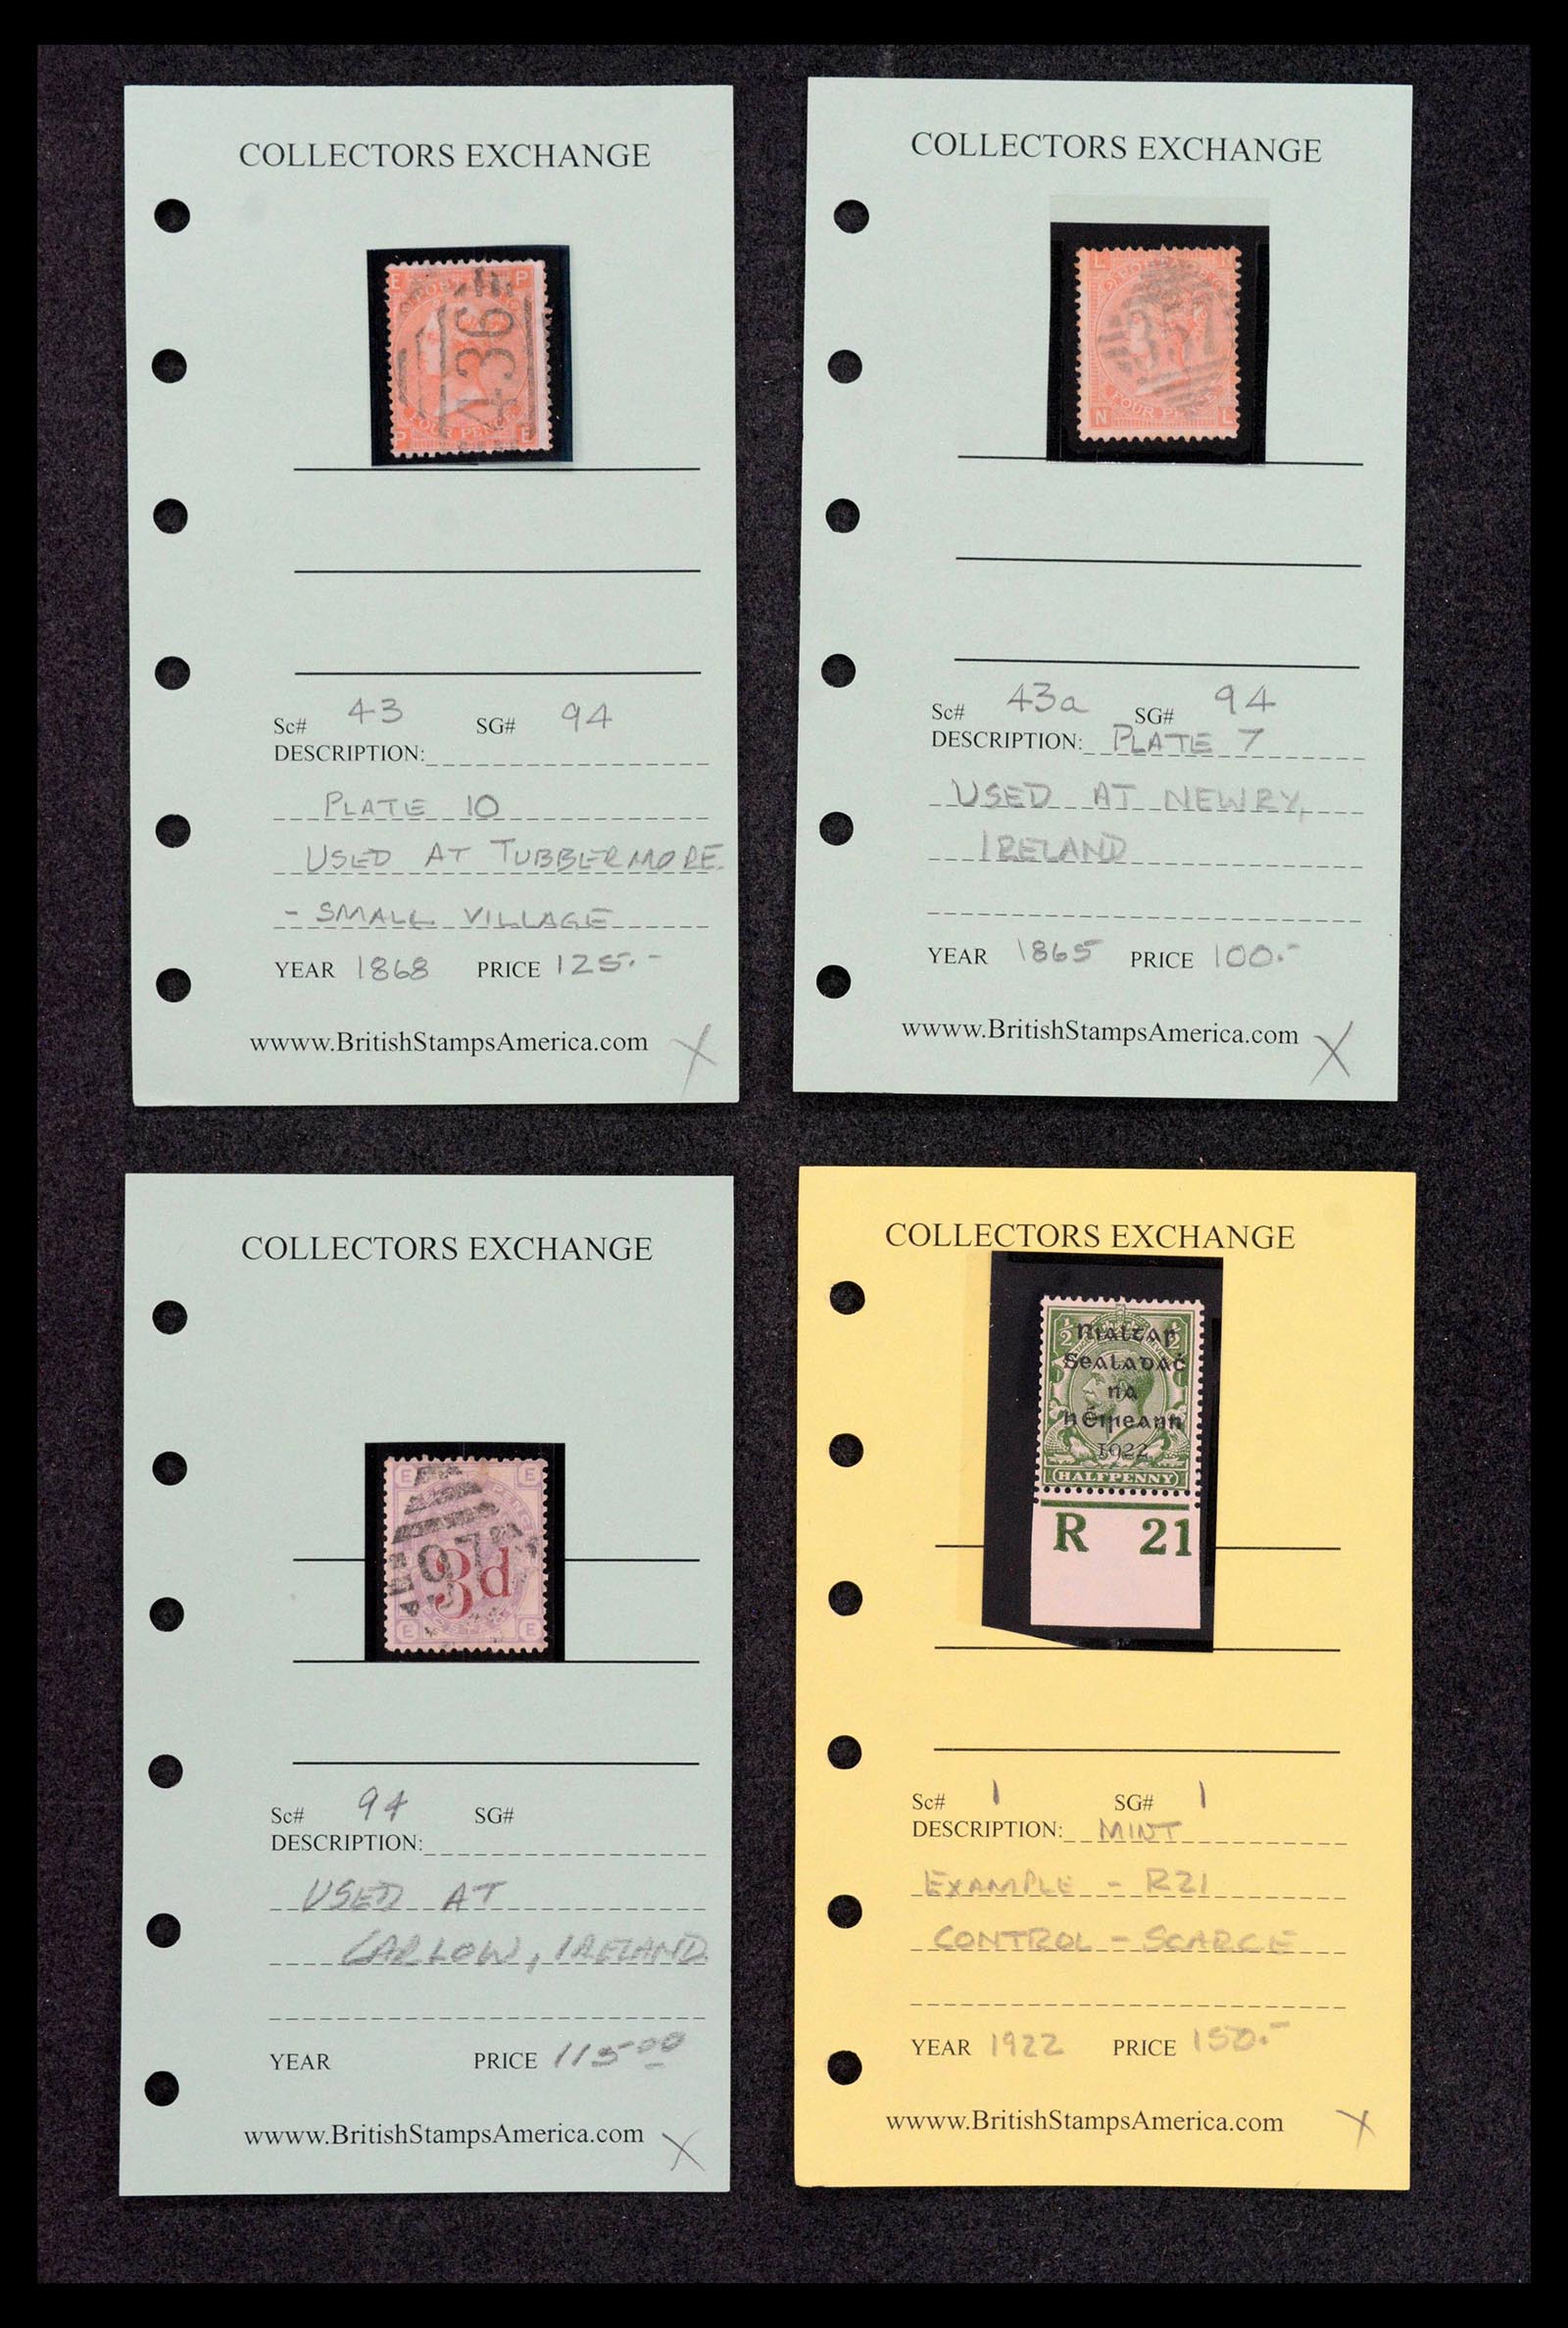 COLLECTORS EXCHANGE
E P
436
FOUR PENCE
P E
Sc# 43 SG# 94
DESCRIPTION:
PLATE 10
USED AT TUBBERMORE
- SMALL VILLAGE
YEAR 1868 PRICE 125.-
wwww.BritishStampsAmerica.com X
COLLECTORS EXCHANGE
L N
357
FOUR PENCE
N L
Sc# 43a SG# 94
DESCRIPTION: PLATE 7
USED AT NEWRY,
IRELAND
YEAR 1865 PRICE 100.-
wwww.BritishStampsAmerica.com X
COLLECTORS EXCHANGE
E E
97
3d
E E
Sc# 94 SG#
DESCRIPTION:
USED AT
CARLOW, IRELAND.
YEAR PRICE 115.00
wwww.BritishStampsAmerica.com X
COLLECTORS EXCHANGE
½ ½
Rialtar
Sealadaċ
na
hÉireann
1922
HALFPENNY
R 21
Sc# 1 SG# 1
DESCRIPTION: MINT
EXAMPLE - R21
CONTROL - SCARCE
YEAR 1922 PRICE 150.-
wwww.BritishStampsAmerica.com X